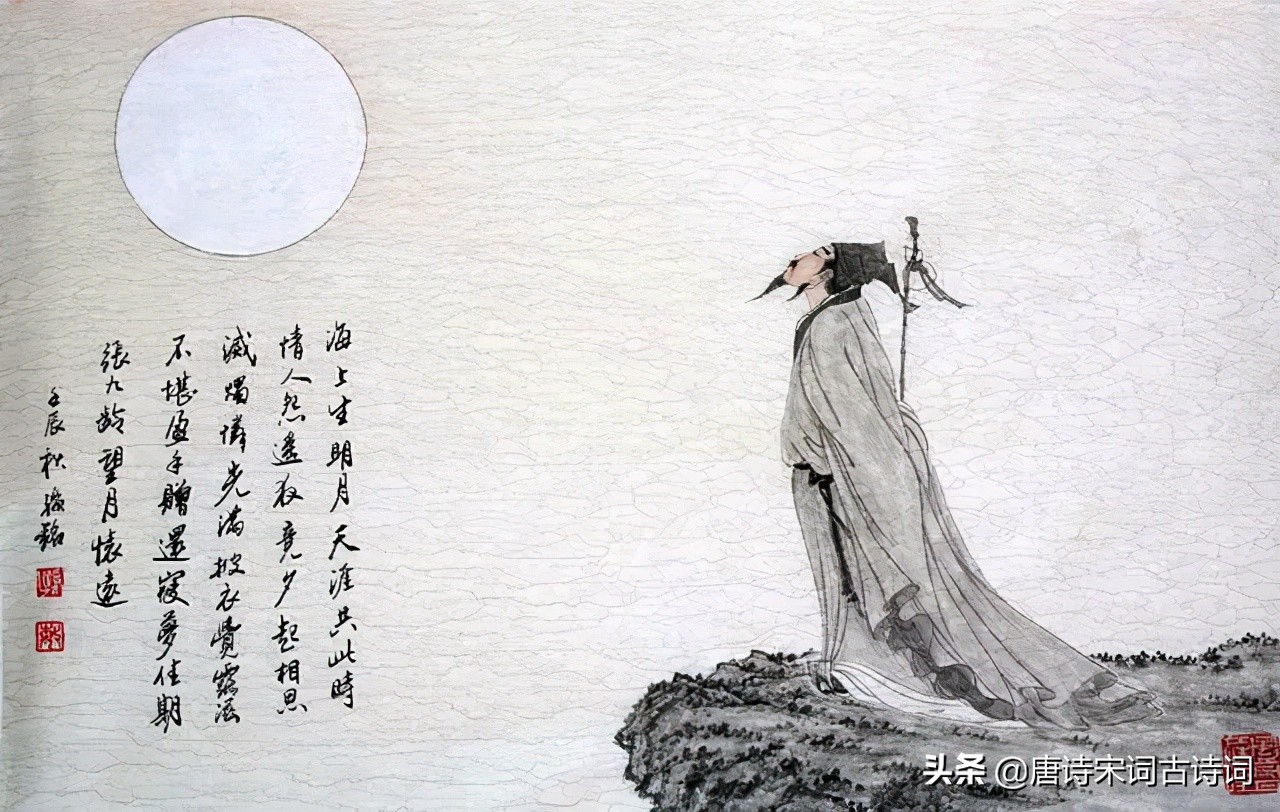 海上生明月天涯共此時
情人怨遙夜竟夕起相思
滅燭憐光滿披衣覺露滋
不堪盈手贈還寢夢佳期
張九齡望月懷遠
壬辰秋
頭条 @唐诗宋词古诗词